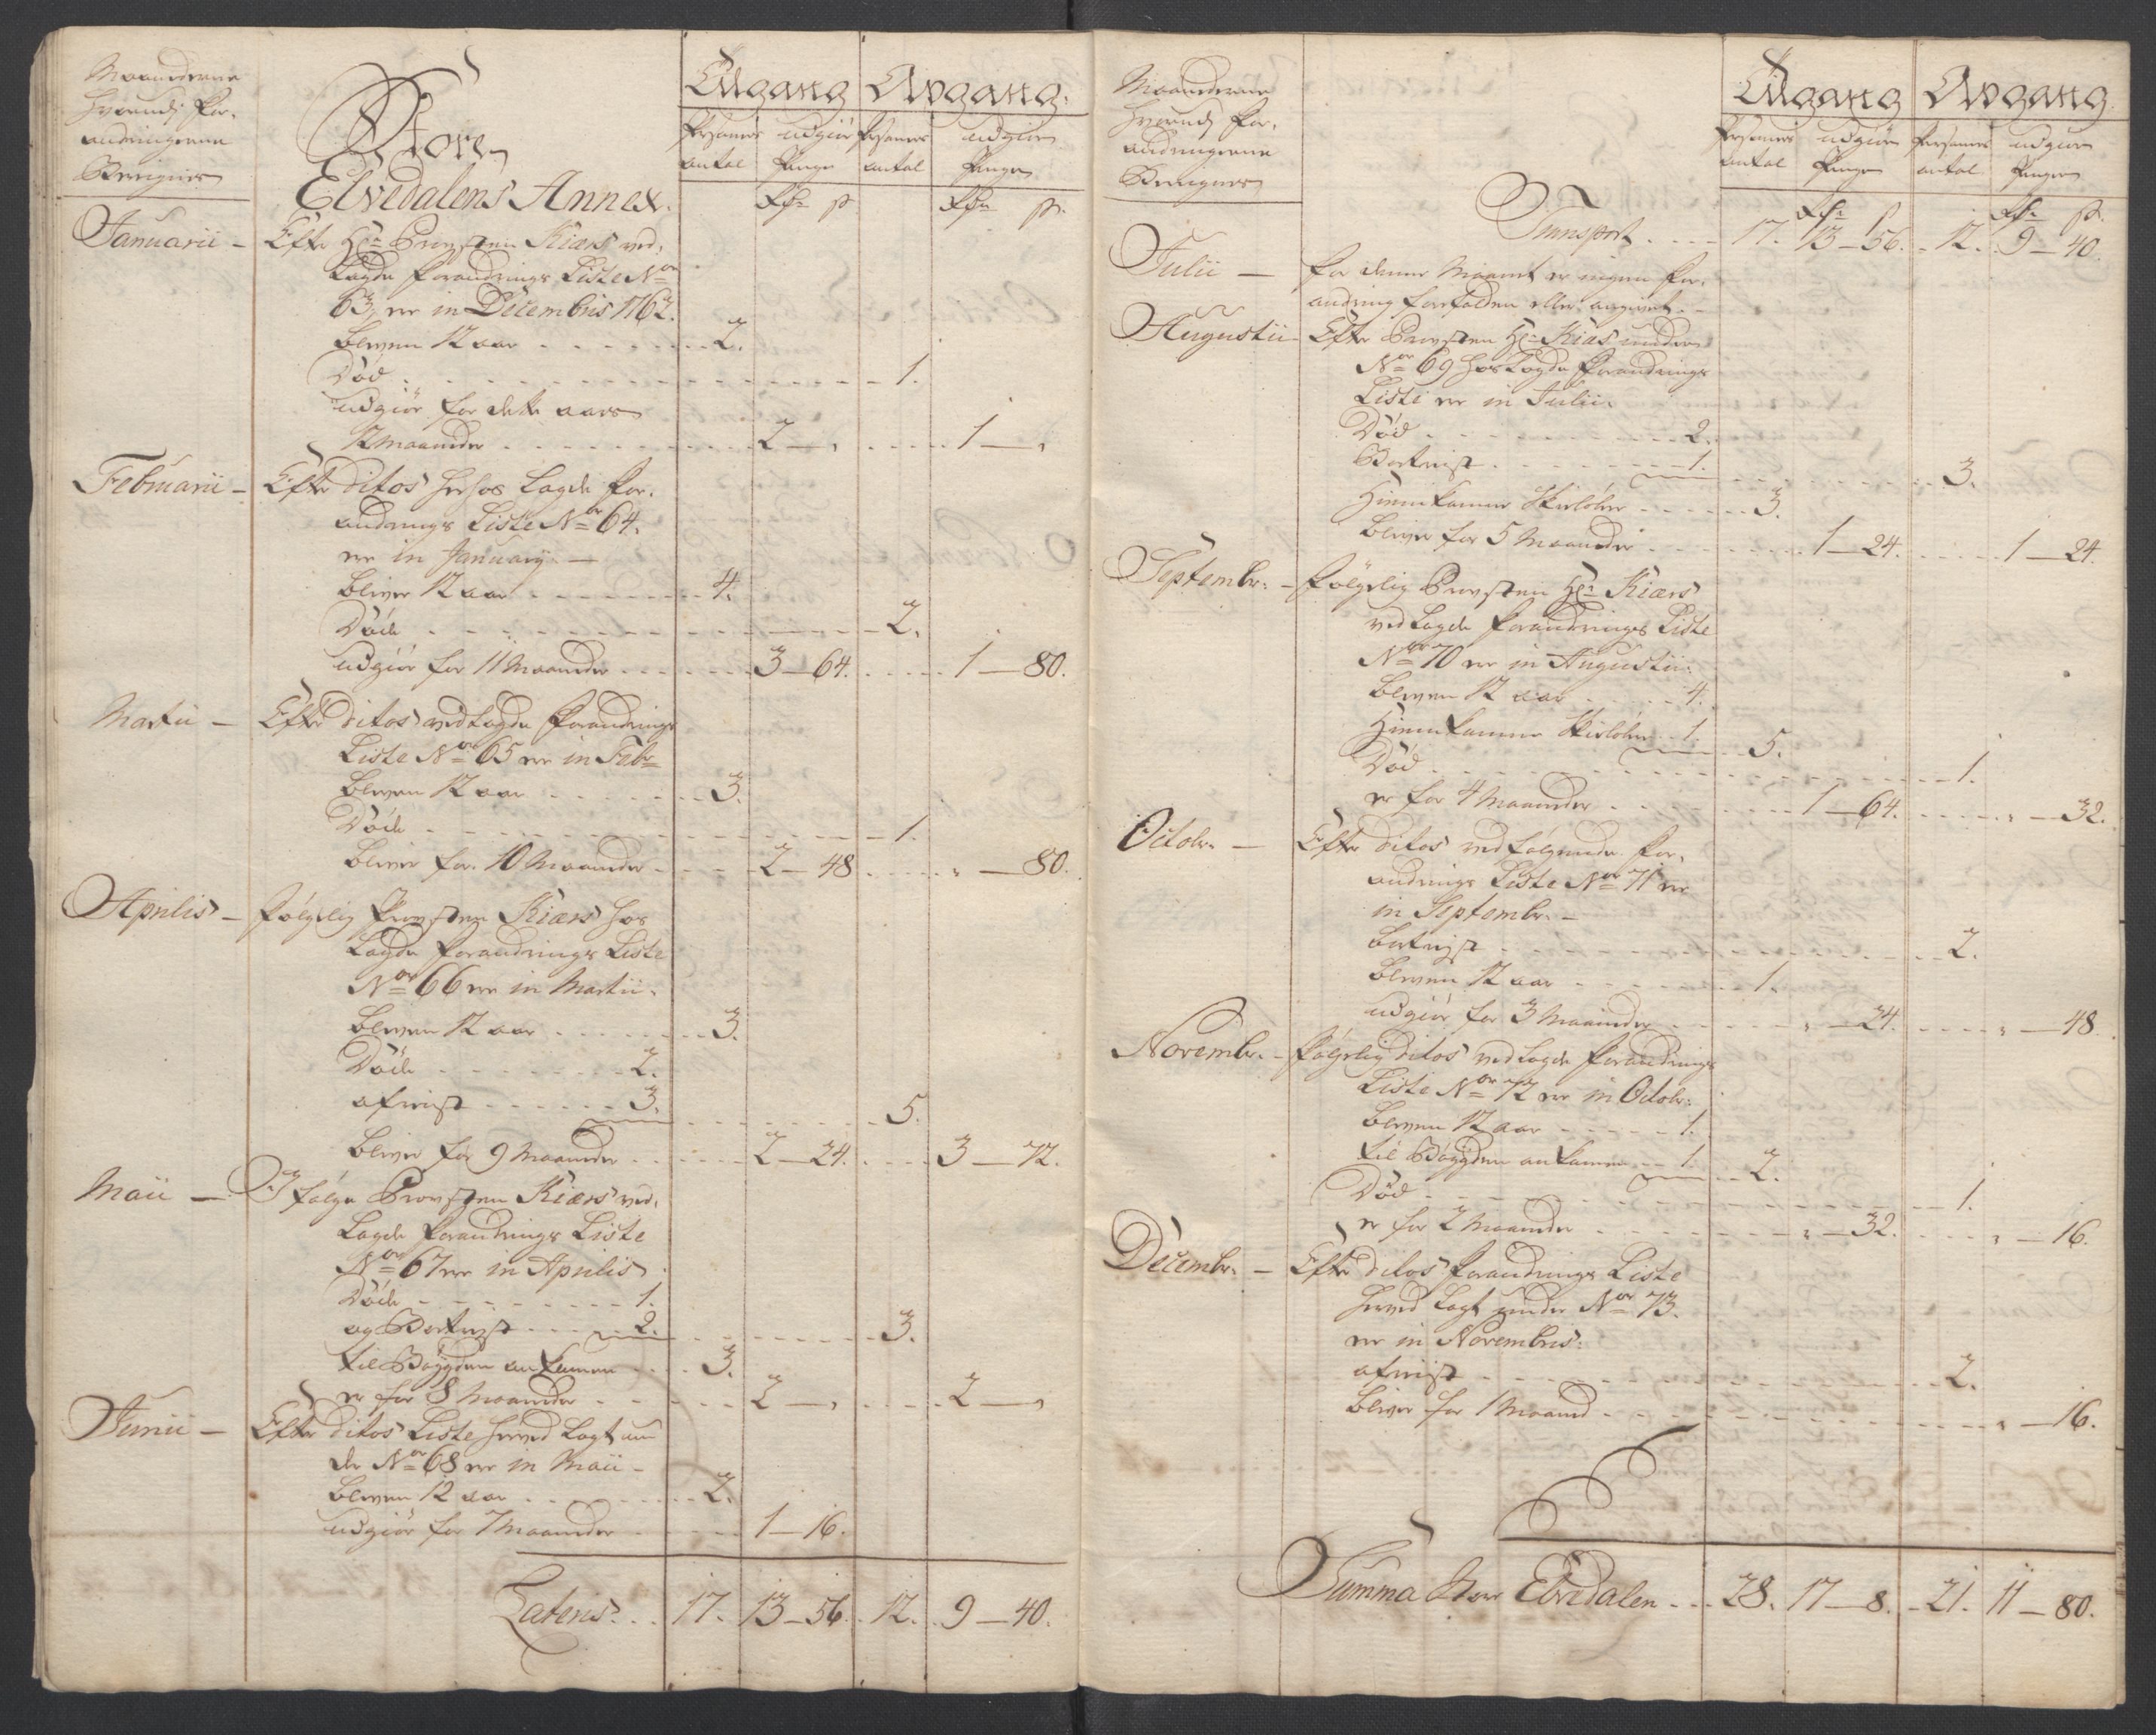 Maanederne
hvorudj For-
andringerne
Beregnes
Store
Elvedalens Annex.
Tilgang Avgang.
Persohners antal
udgiør Penge
Persohners antal
udgiør Penge
Rdr ß
Rdr ß.
Januarii - Efter Hr Provsten Kiærs ved-
Lagde Forandrings Liste No
63, er in Decembris 1762.
bleven 12 aar . . . . 2.
Død . . . . 1.
udgiør for dette aars
12 Maaneder . . . . 2 — , . . . . 1 — ,
Februarii - Efter ditos hos Lagde For-
andrings Liste No 64.
er in January —
bliver 12 aar . . . . 4.
Døde . . . . 2.
udgiør for 11 Maaneder . . . . 3 — 64. . . . . 1 — 80.
Martii - Efter ditos vedLagde Forandrings
Liste No 65 er in Febr
bleven 12 aar . . . . 3.
Døde . . . . 1.
bliver for 10 Maaneder . . . . 2 — 48 . . . . „ — 80.
Aprilis - Følgelig Provsten Kiærs hos
Lagde Forandrings Liste
No 66 er in Martii.
bleven 12 aar . . . . 3.
Døde . . . . 2.
afreist . . . . 3.
5.
bliver for 9 Maaneder . . . . 2 — 24. . . . . 3 — 72.
Maii - I følge Provsten Kiærs ved-
Lagde Forandrings Liste
No 67 er in Aprilis
Døde . . . . 1.
og Bortreist . . . . 2.
3.
til Bøygden ankommen . . . . 3.
er for 8 Maaneder . . . . 2 — , . . . . 2 — ,
Junii - Efter ditos Liste herved Lagt un
der No 68 er in Maii -
bleven 12 aar . . . . 2.
udgiør for 7 Maaneder . . . . 1 — 16.
Lateris . . 17. 13 — 56. 12. 9 — 40.
Maanederne
hvorudj For-
andringerne
Beregnes
Tilgang Avgang
Persohners antal
udgiør Penge
Persohners antal
udgiør Penger
Rdr ß
Rdr ß.
Transport . . . . 17. 13 — 56. . 12. 9 — 40.
Julii — For denne Maanet er ingen For-
andring forefalden eller angivet . -
Augustii - Efter Provsten Hr Kiærs under
No 69 hos Lagde Forandrings
Liste er in Julii.
Død . . . . 2.
Bortreist . . . . 1.
3.
Hiemkamne Skieløber . . . . 3.
bliver for 5 Maaneder . . . . 1 — 24. . . . . 1 — 24.
Septembr. - Følgelig Provsten Hr Kiærs
vedLagde Forandrings Liste
No 70 er in Augustii.
bleven 12 aar . . . . 4.
Hiemkamne Skieløber . . 1.
5.
Død . . . . 1.
er for 4 Maaneder . . . . 1 — 64. . . . . „ — 32.
Octobr. — Efter ditos vedfølgende For-
andrings Liste No 71 er
in Septembr. -
bortreist . . . . 2.
bleven 12 aar . . . . 1.
udgiør for 3 Maaneder . . . . „ — 24. . . . . „ — 48.
Novembr. - Følgelig ditos vedLagde Forandrings
Liste No 72 er in Octobr.
bleven 12 aar . . . . 1.
til Bøygden ankommen . . 1.
2.
Død . . . . 1.
er for 2 Maaneder . . . . „ — 32. . . . . „ — 16.
Decembr. - Efter ditos Forandrings Liste
herved Lagt under No 73.
er in Novembris.
afreist . . . . 2.
bliver for 1 Maaned . . . . „ — 16.
Summa Store Elvedalen . . . 28. 17 — 8. . 21. 11 — 80.